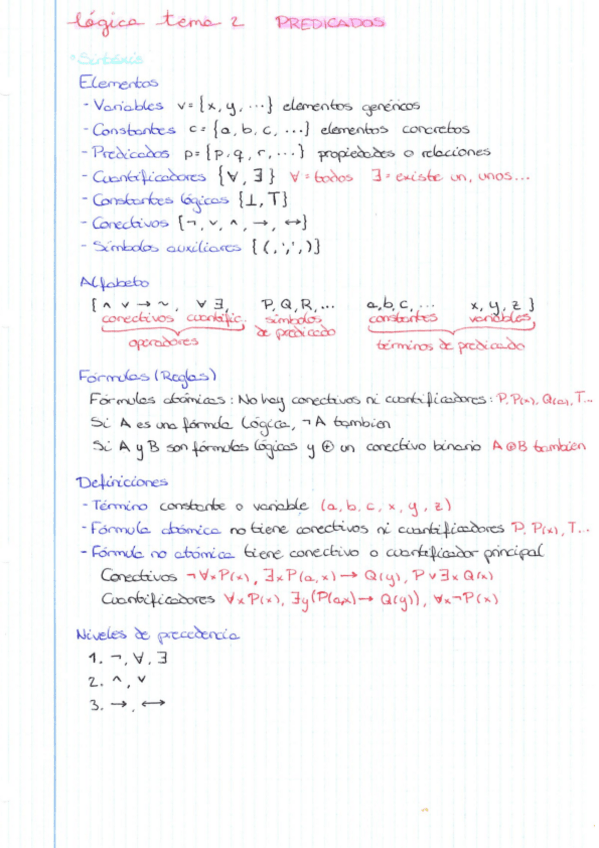 lógica tema 2 PREDICADOS
• Sintaxis
Elementos
- Variables v={x, y, ...} elementos genéricos
- Constantes c={a, b, c, ...} elementos concretos
- Predicados p={p, q, r, ...} propiedades o relaciones
- Cuantificadores {∀, ∃} ∀=todos ∃=existe un, unos...
- Constantes lógicas {⊥, T}
- Conectivos {¬, ∨, ∧, →, ↔}
- Símbolos auxiliares {(, ',', )}
Alfabeto
{∧ ∨ → ~, ∀ ∃, P, Q, R, ... a, b, c, ... x, y, z}
conectivos cuantific. símbolos de predicado constantes variables
operadores términos de predicado
Fórmulas (Reglas)
Fórmulas atómicas: No hay conectivos ni cuantificadores: P, P(x), Q(a), T...
Si A es una fórmula lógica, ¬A tambien
Si A y B son fórmulas lógicas y ⊕ un conectivo binario A⊕B tambien
Definiciones
- Término constante o variable (a, b, c, x, y, z)
- Fórmula atómica no tiene conectivos ni cuantificadores P, P(x), T...
- Fórmula no atómica tiene conectivo o cuantificador principal
Conectivos ¬∀xP(x), ∃xP(a,x)→Q(y), P∨∃xQ(x)
Cuantificadores ∀xP(x), ∃y(P(a,x)→Q(y)), ∀x¬P(x)
Niveles de precedencia
1. ¬, ∀, ∃
2. ∧, ∨
3. →, ↔